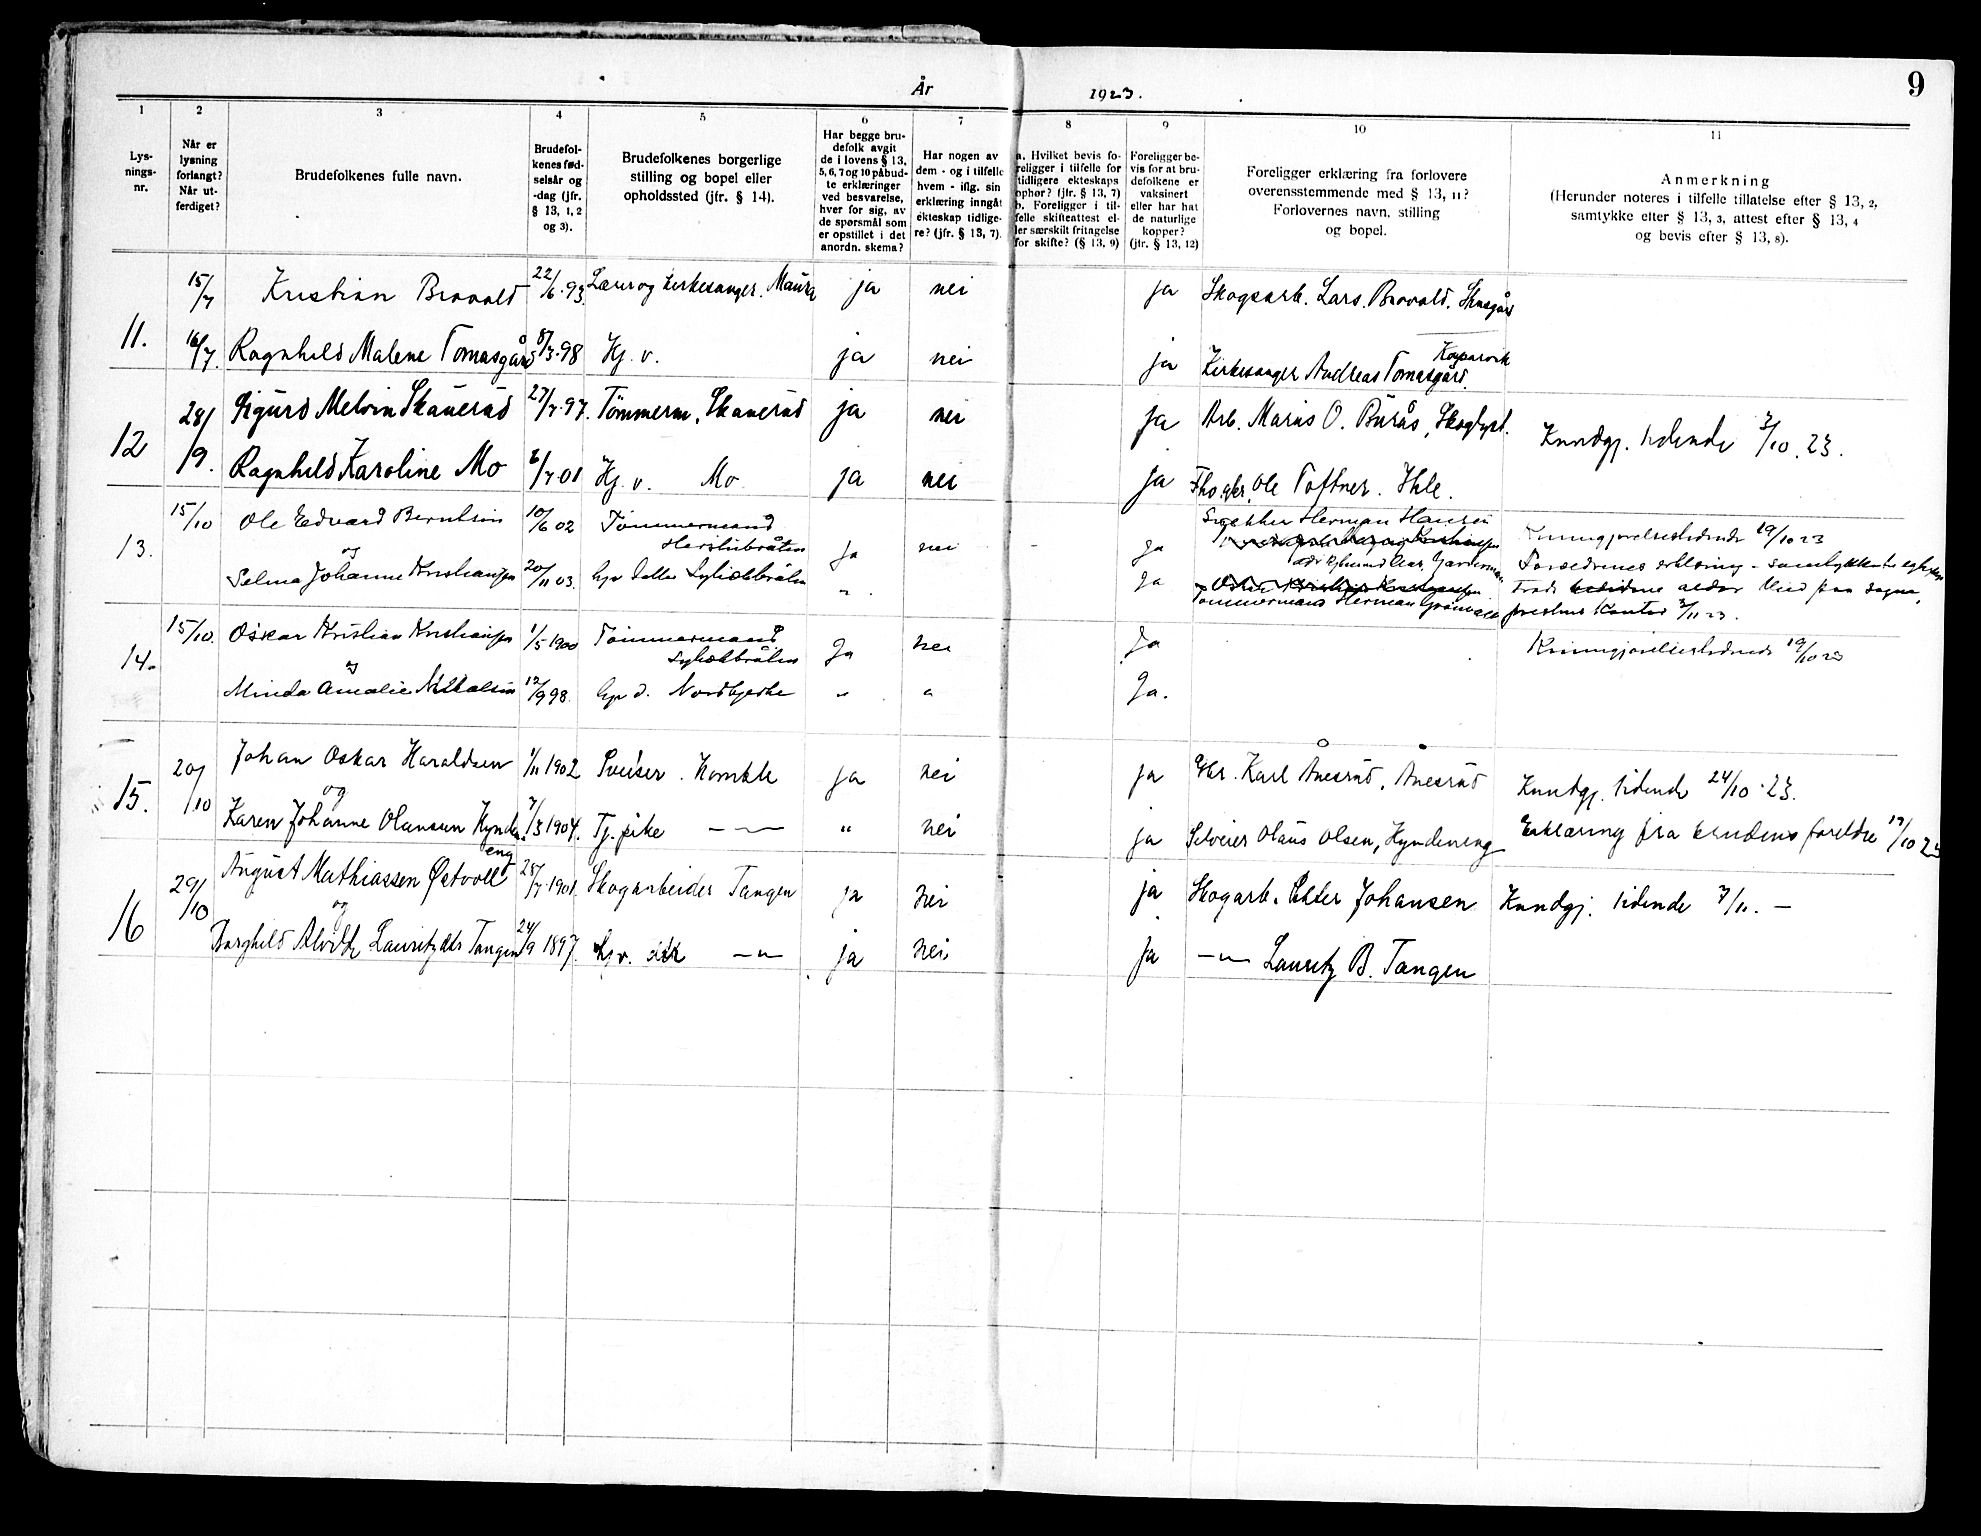 9
År 1923.
1 2 3 4 5 6 7 8 9 10 11
Lys-
nings-
nr.
Når er
lysning
forlangt?
Når ut-
ferdiget?
Brudefolkenes fulle navn.
Brudefol-
kenes fød-
selsår og
-dag (jfr.
§ 13, 1, 2
og 3).
Brudefolkenes borgerlige
stilling og bopel eller
opholdssted (jfr. § 14).
Har begge bru-
defolk avgit
de i lovens § 13,
5, 6, 7 og 10 påbud-
te erklæringer
ved besvarelse,
hver for sig, av
de spørsmål som
er opstillet i det
anordn. skema?
Har nogen av
dem - og i tilfelle
hvem - iflg. sin
erklæring inngåt
ekteskap tidlige-
re? (jfr. § 13, 7).
a. Hvilket bevis fo-
religger i tilfelle for
tidligere ekteskaps
ophør? (jfr. § 13, 7)
b. Foreligger i til-
felle skifteattest el-
ler særskilt fritagelse
for skifte? (§ 13, 9)
Foreligger be-
vis for at bru-
defolkene er
vaksinert
eller har hat
de naturlige
kopper?
(jfr. § 13, 12)
Foreligger erklæring fra forlovere
overensstemmende med § 13, 11?
Forlovernes navn, stilling
og bopel.
Anmerkning
(Herunder noteres i tilfelle tillatelse efter § 13, 2,
samtykke efter § 13, 3, attest efter § 13, 4
og bevis efter § 13, 8).
15/7 Kristian Brovold 22/6.93 Lærer og kirkesanger. Maura ja nei ja Skogsarb. Lars. Brovold.
11. 16/7. Ragnhild Malene Tomasgård 8/3.98 Hj. v. ja nei ja Kirkesanger Andreas Tomasgård.
12 28/9. Sigurd Melvin Skanerud 27/7.97. Tømmerm. Skanerud ja nei ja Arb. Marius O. Burås, Skogbygd. Kundgj. tidende 3/10.23.
Ragnhild Karoline Mo 6/7.01 Hj. v. Mo ja nei ja Ole Toftner. Ihle.
13. 15/10 Ole Edvard Berntsen 10/6 02 Tømmermand ja nei ja Herman Hansen Kunngjørelsestidende 19/10 23
og
Selma Johanne Kristiansen 20/11 03. " ja Tømmermand Herman
14. 15/10. Oskar Kristian Kristiansen 1/5 1900 Tømmermand Ja nei Ja Kunngjørelsestidende 19/10 23
og
Minda Amalie Nikolsen 12/9 98. Nordbjerke " " Ja.
15. 20/10 Johan Oskar Haraldsen 1/11 1902 Sveiser. ja nei ja Gbr. Karl Ånesrud, Ånesrud Kundgj. tidende 24/10.23.
og
Karen Johanne Olausen Kynden- 7/3 1904. Tj. pike —〃— " nei ja Selveier Olaus Olsen, Kyndeneng Erklæring fra brudens foreldre 19/10 23
eng
16 29/10 August Mathiassen Østvoll 25/7.1901. Skogarbeider Tangen ja nei ja Skogarb. Peder Johansen Kundgj. tidende 7/11. —
og
Borghild Alvilde Lauritzdtr Tangen 24/9 1897. hjv. —〃— ja nei ja —〃— Lauritz B. Tangen